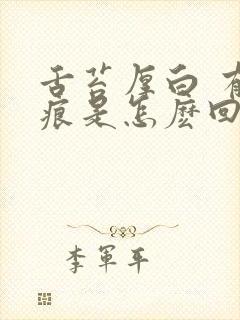 舌苔厚白 有
痕是怎麽回
李軍平